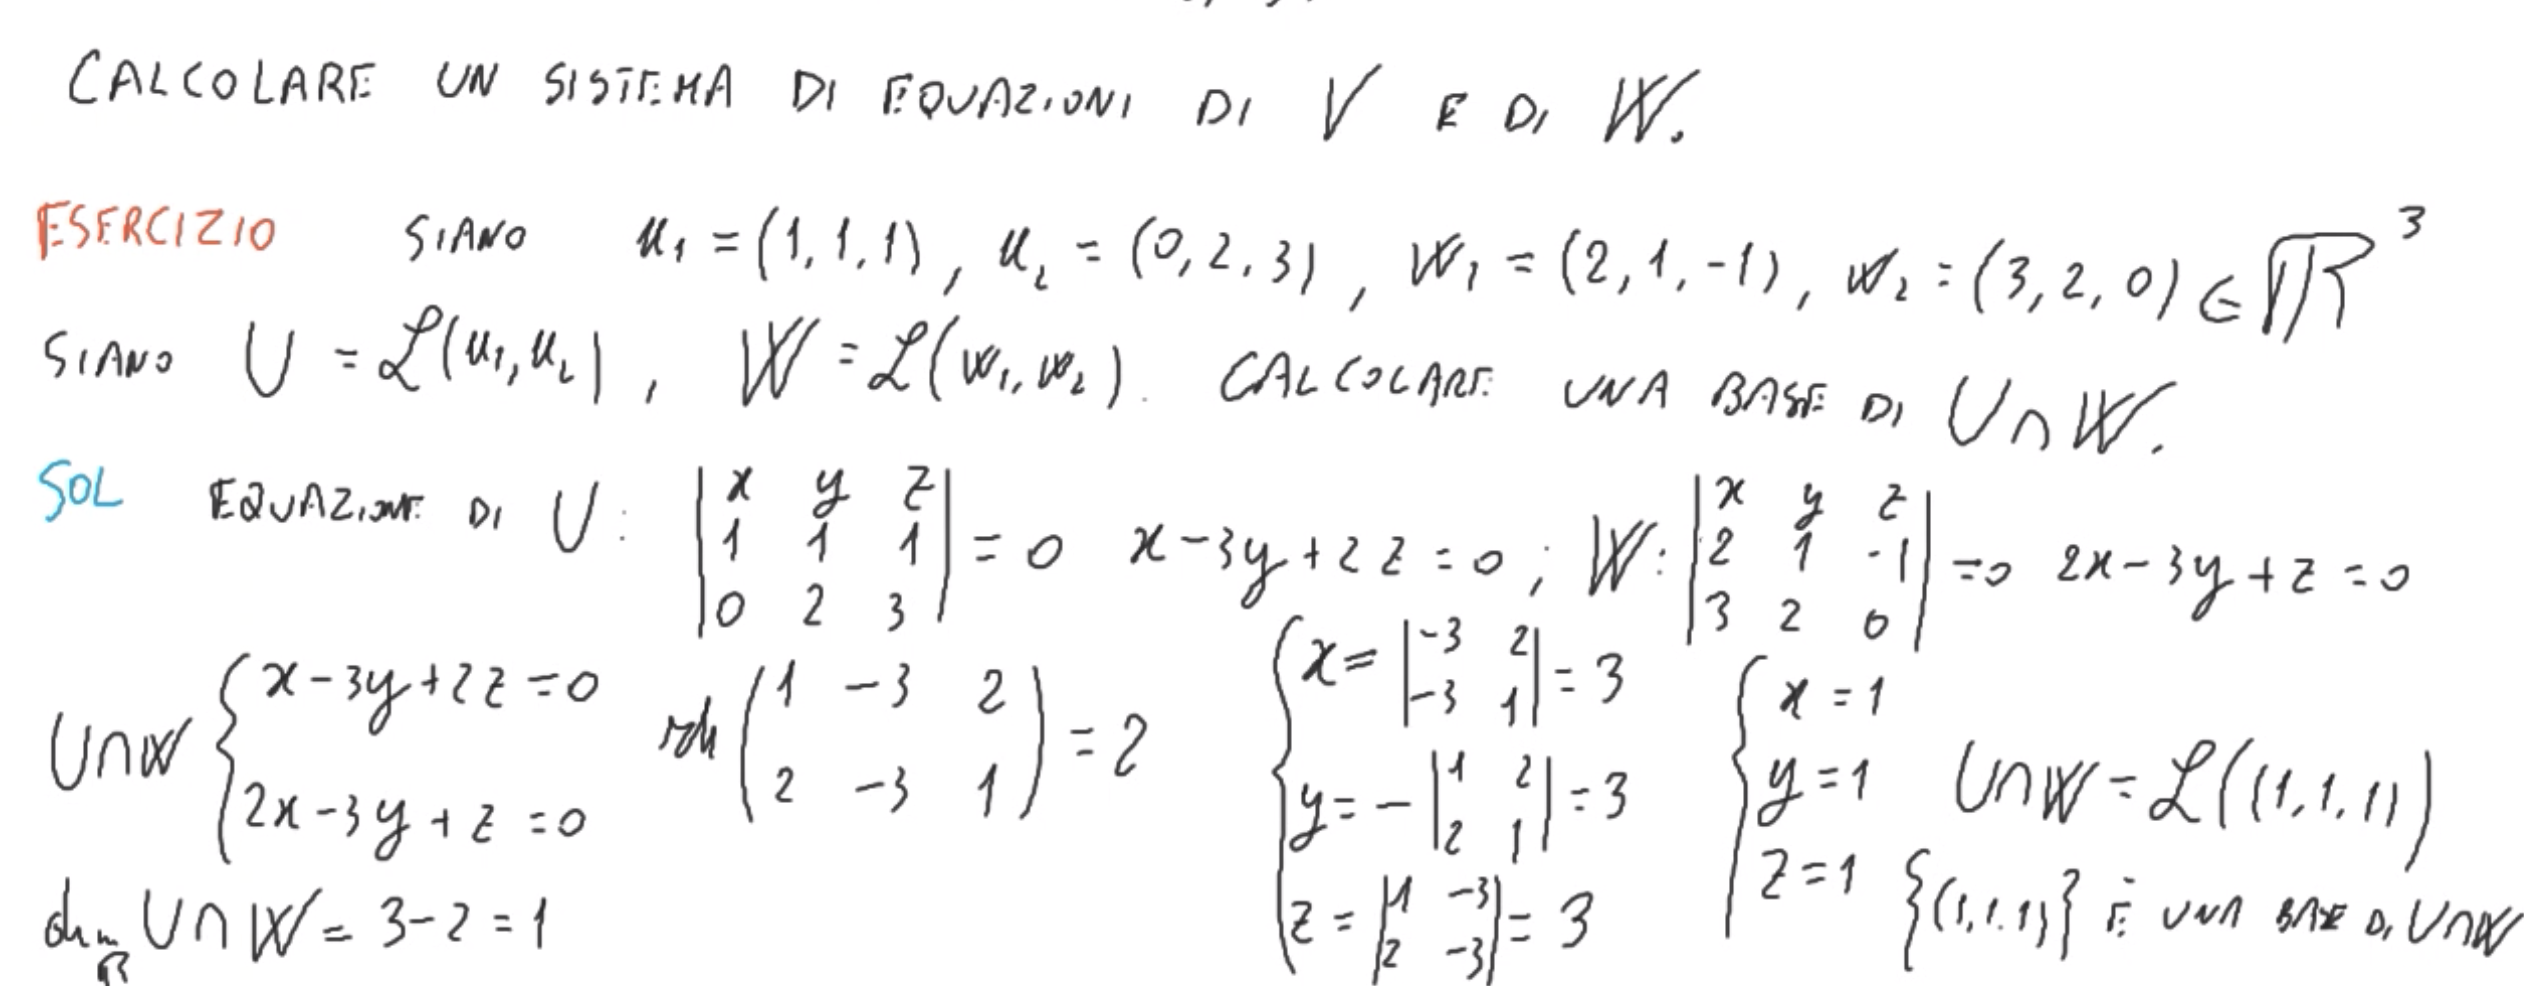 CALCOLARE UN SISTEMA DI EQUAZIONI DI V E DI W.
ESERCIZIO SIANO u₁ = (1, 1, 1), u₂ = (0, 2, 3), w₁ = (2, 1, -1), w₂ = (3, 2, 0) ∈ ℝ³
SIANO U = ℒ(u₁, u₂), W = ℒ(w₁, w₂). CALCOLARE UNA BASE DI U ∩ W.
SOL EQUAZIONE DI U: |x y z; 1 1 1; 0 2 3| = 0 x - 3y + 2z = 0; W: |x y z; 2 1 -1; 3 2 0| = 0 2x - 3y + z = 0
U∩W { x - 3y + 2z = 0; 2x - 3y + z = 0 rk (1 -3 2; 2 -3 1) = 2 { x = |-3 2; -3 1| = 3; y = - |1 2; 2 1| = 3; z = |1 -3; 2 -3| = 3 { x = 1; y = 1; z = 1 U∩W = ℒ((1, 1, 1))
dim_ℝ U ∩ W = 3 - 2 = 1 {(1, 1, 1)} È UNA BASE DI U∩W